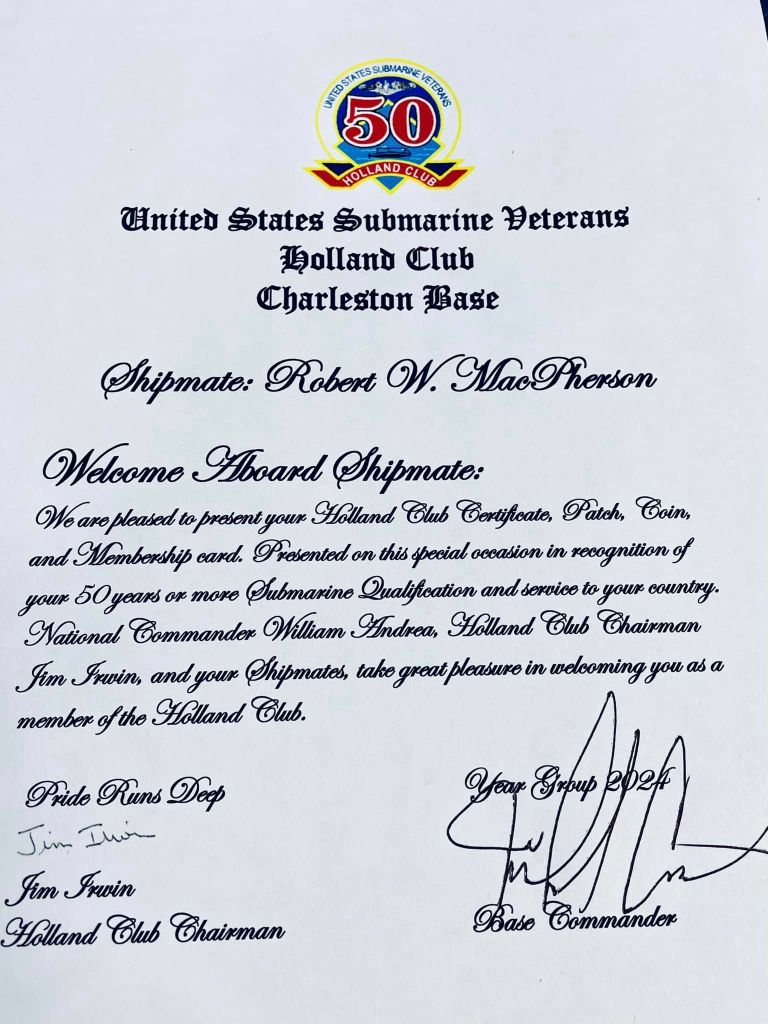 UNITED STATES SUBMARINE VETERANS
50
HOLLAND CLUB
United States Submarine Veterans
Holland Club
Charleston Base
Shipmate: Robert W. MacPherson
Welcome Aboard Shipmate:
We are pleased to present your Holland Club Certificate, Patch, Coin,
and Membership card. Presented on this special occasion in recognition of
your 50 years or more Submarine Qualification and service to your country.
National Commander William Andrea, Holland Club Chairman
Jim Irwin, and your Shipmates, take great pleasure in welcoming you as a
member of the Holland Club.
Pride Runs Deep
Year Group 2024
Jim Irwin
Jim Irwin
Holland Club Chairman
Base Commander